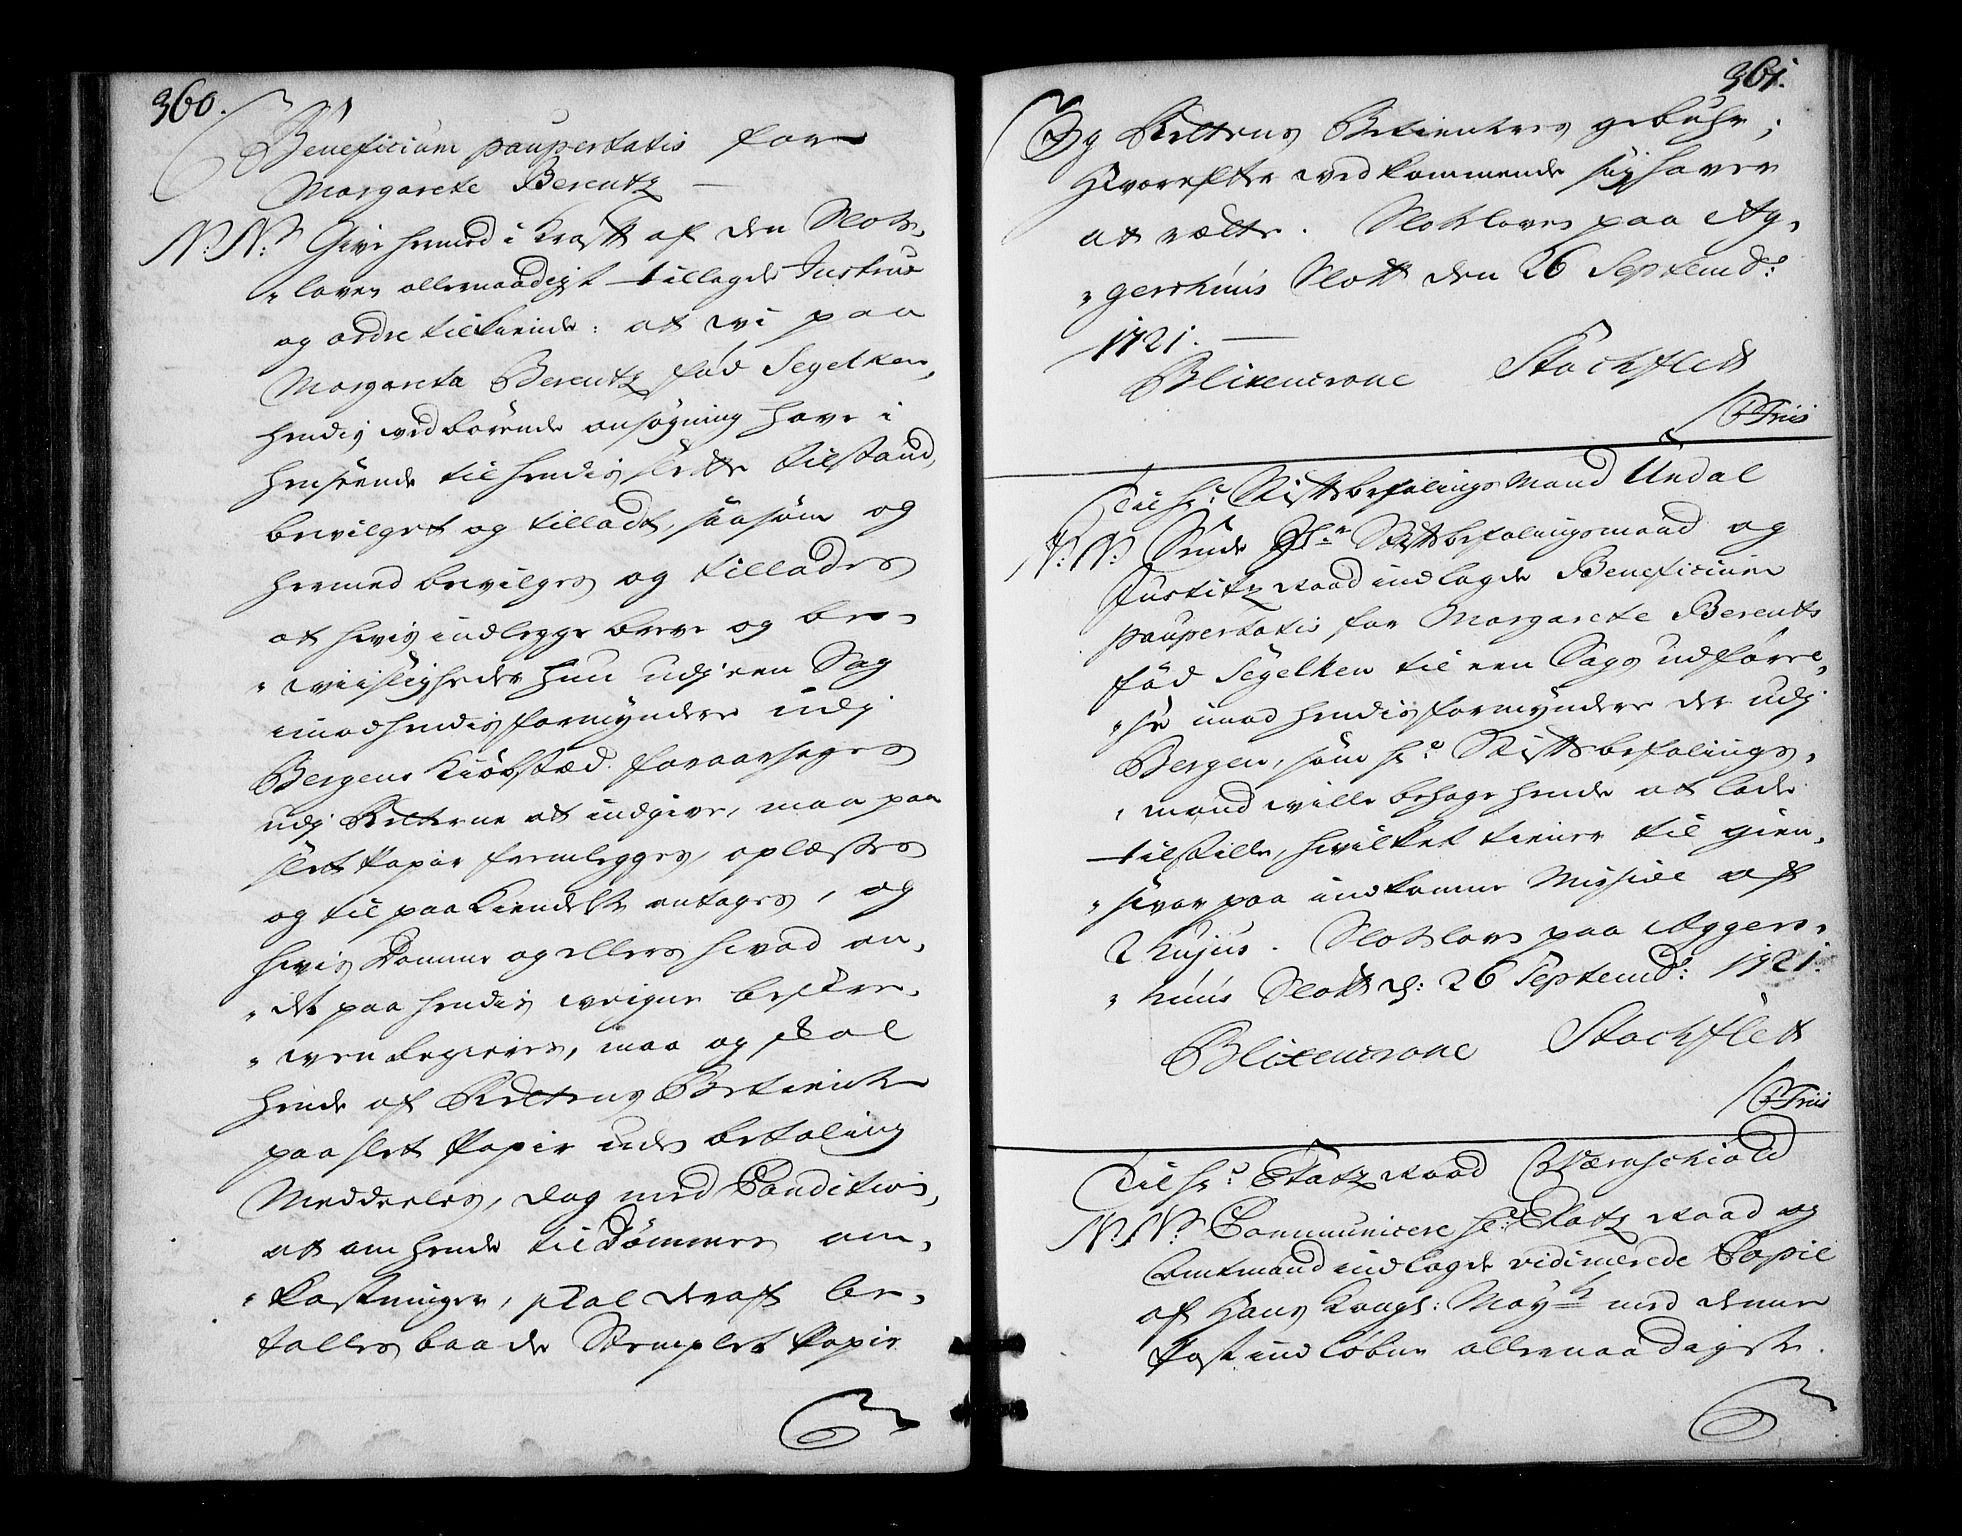 360.
Beneficium paupertatis for
Margarete Berentz
N: N: Give hermed i krafft af den Slots,
"loven allernaadigst tillagde Instrux
og ordre tilkiende: at wi paa
Margareta Berentz fød Segelken,
hendis wedbørende ansøgning have i
henseende til hendis slette tilstand,
bevilget og tilladt, saasom og
hermed bevilges og tillades
at hvis indlegge breve og be,
"wiisligheder hun udj een Sag
imod hendis formyndere udj
Bergens Kiøbstæd foraarsages
udj Retterne at indgive, maa paa
slet Papir fremlegges, oplæses
og til paakiendelse antages, og
hvis Domme og ellers hvad an,
"det paa hendis weigne beskre,
"wen begieres, maa og skal
hende af Rettens Betiente
paa slet Papir uden betaling
Meddeeles, dog med Condition,
at om hende tildømmes om,
"kostninger, skal deraf be,
talles baade Stemplet Papir
361.
Og Rettens Betienters gebühr;
Hvorefter wedkommende sig haver
at rætte. Slotsloven paa Ag,
"gershuus Slott den 26 Septembr:
1721.
Blixencrone Stockflett
/ Friis
Til Hr: Stifftsbefalings Mand Undal
N: N: Sende Hr: Stifftsbefalingsmand og
Justitz Raad indlagde Beneficium
paupertatis for Margarete Berentz
fød Segelken til een Sags udføre,
"se imod hendis formyndere der udj
Bergen, som Hr: Stifftsbefalings,
"mand wille behage hende at lade
tilstille, hvilket tiener til gien,
"svar paa indkomne Missive af
2 hujus. Slotslove paa Aggers,
"huus Slott d: 26 Septembr: 1721.
Blixencrone Stockflett
/ Friis
Til Hr: Etatz Raad Værnschiold
N: N: Communicere Hr: Etatz Raad og
Amtmand indlagde vidimerede Copie
af Hans Kongl: Mayts med denne
Post indløbne allernaadigste